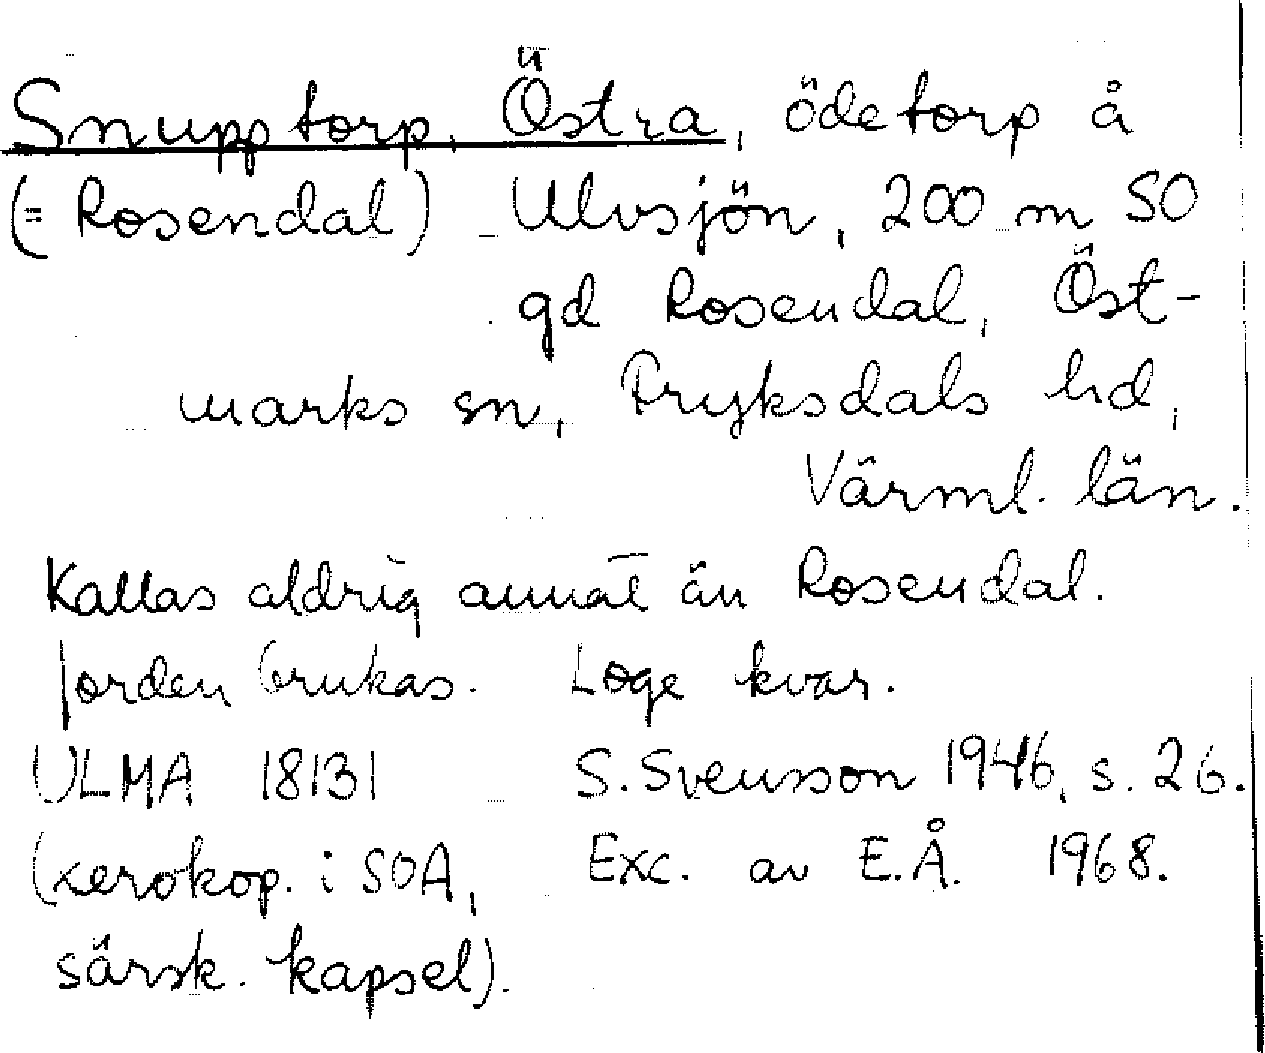 Snupptorp, Östra, ödetorp å
(= Rosendal) Ulvsjön, 200 m SO
gd Rosendal, Öst-
marks sn, Fryksdals hd,
Värml. län.
Kallas aldrig annat än Rosendal.
Jorden brukas. Loge kvar.
ULMA 18131 S. Svensson 1946, s. 26.
(xerokop. i SOA, Exc. av E.Å. 1968.
särsk. kapsel).